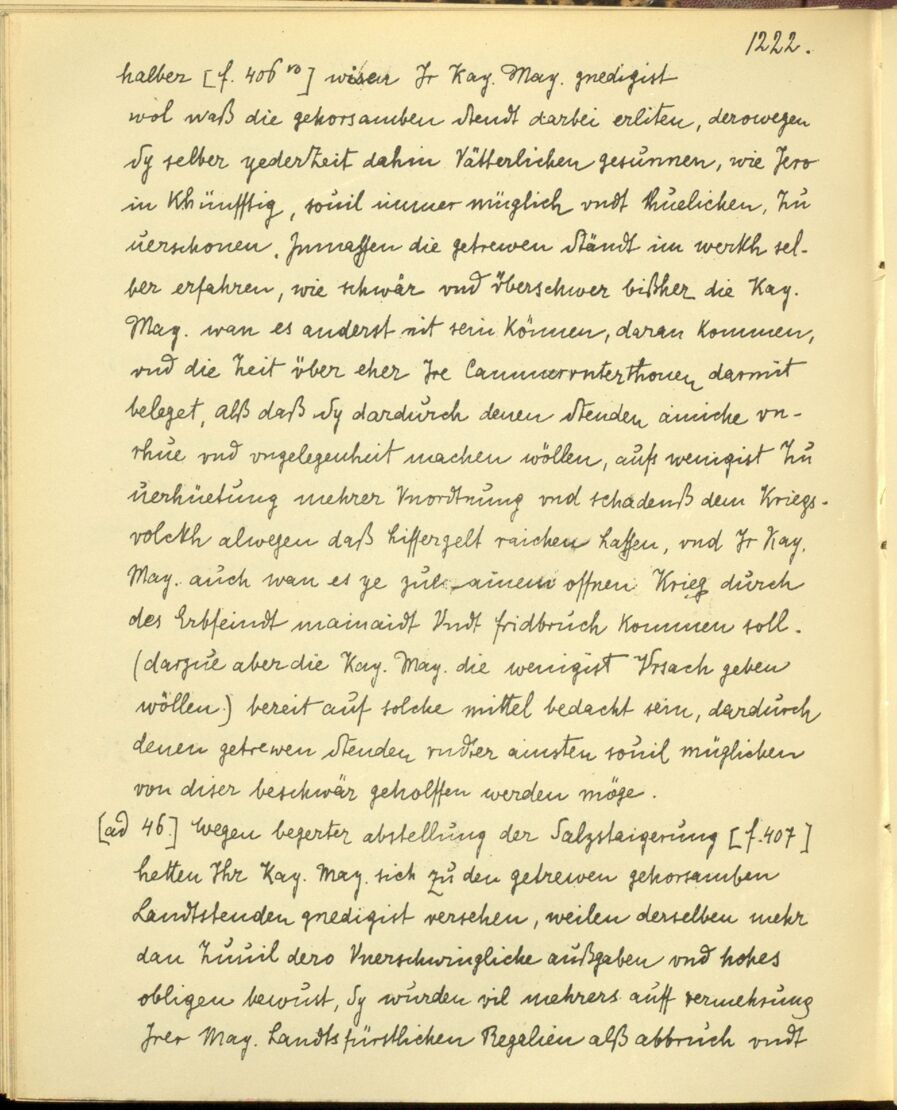 1222.
halber [f. 406 vo] wisen Jr Kay. May. gnedigist
wol waß die gehorsamben Stendt darbei erliten, derowegen
Sy selber yederZeit dahin Vätterlichen gesunnen, wie Jero
in Khünfftig, souil immer müglich vndt thuelichen, Zu
uerschonen. Jnmassen die getrewen Ständt im werkh sel-
ber erfahren, wie schwär vnd überschwer bißher die Kay.
May. wan es anderst nit sein Können, daran Kommen,
vnd die Zeit über eher Jre Cammervnterthonen darmit
beleget, Alß daß Sy dardurch denen Stenden ainiche vn-
rhue vnd vngelegenheit machen wöllen, aufs wenigist Zu
uerhüetung mehrer Vnordtnung vnd schadenß dem Kriegs-
volckh alwegen daß liffergelt raichen lassen, vnd Jr Kay.
May. auch wan es ye zu ainem offnen Krieg durch
des Erbfeindt mainaidt Vndt fridbruch Kommen soll.
(darzue aber die Kay. May. die wenigist Vrsach geben
wöllen) bereit auf solche mittel bedacht sein, dardurch
denen getrewen Stenden vndter ainsten souil müglichen
von diser beschwär geholffen werden möge.
[ad 46.] Wegen begerter abstellung der Salzstaigerung [f. 407]
hetten Ihr Kay. May. sich zu den getrewen gehorsamben
Landtstenden gnedigist versehen, weilen derselben mehr
dan Zuuil dero Vnerschwingliche außgaben vnd hohes
obligen bewust, Sy wurden vil mehrers auff vermehrung
Jrer May. Landtsfürstlichen Regalien alß abbruch vndt